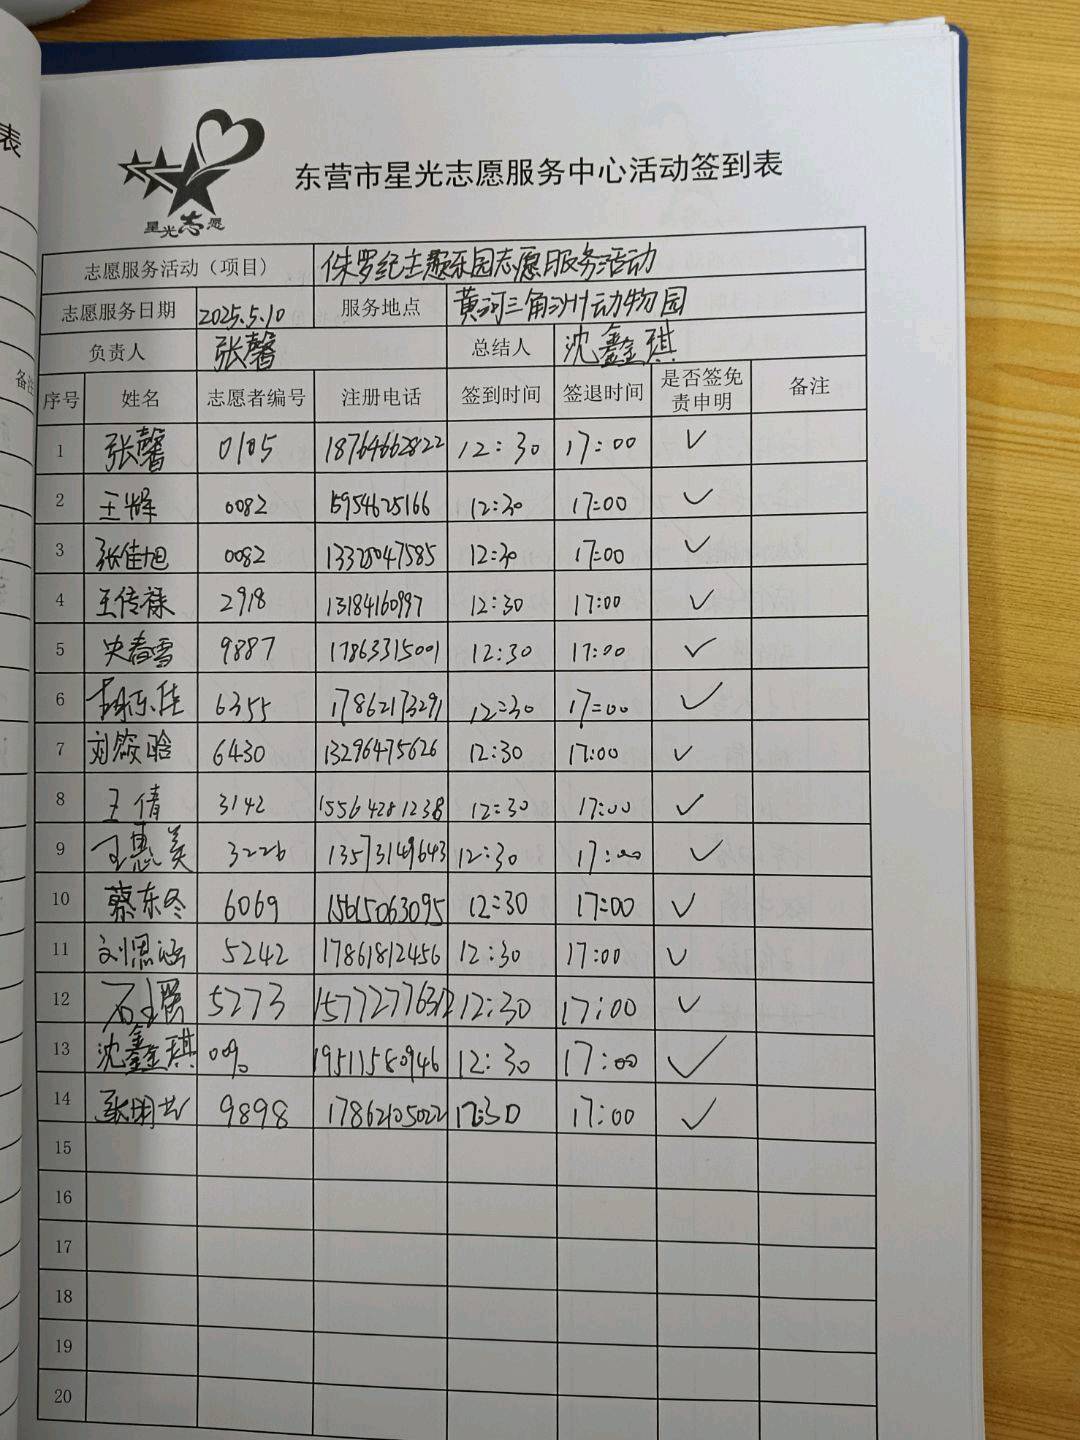 表
备注
星光志愿
东营市星光志愿服务中心活动签到表
志愿服务活动（项目） 侏罗纪主题乐园志愿服务活动
志愿服务日期 2025.5.10 服务地点 黄河三角洲动物园
负责人 张馨 总结人 沈鑫琪
序号 姓名 志愿者编号 注册电话 签到时间 签退时间 是否签免责申明 备注
1 张馨 0105 18764662822 12:30 17:00 ✓
2 王辉 0082 15954625166 12:30 17:00 ✓
3 张佳旭 0082 13328047585 12:30 17:00 ✓
4 王传禄 2918 13184160997 12:30 17:00 ✓
5 史春雪 9887 17863315001 12:30 17:00 ✓
6 胡乐佳 6355 17862173291 12:30 17:00 ✓
7 刘筱晗 6430 13296475626 12:30 17:00 ✓
8 王倩 3142 15564281238 12:30 17:00 ✓
9 王惠美 3226 13573149643 12:30 17:00 ✓
10 蔡东冬 6069 15615063095 12:30 17:00 ✓
11 刘恩涵 5242 17861812456 12:30 17:00 ✓
12 5273 12:30 17:00 ✓
13 沈鑫琪 0096 19511580946 12:30 17:00 ✓
14 9898 17862105022 12:30 17:00 ✓
15
16
17
18
19
20